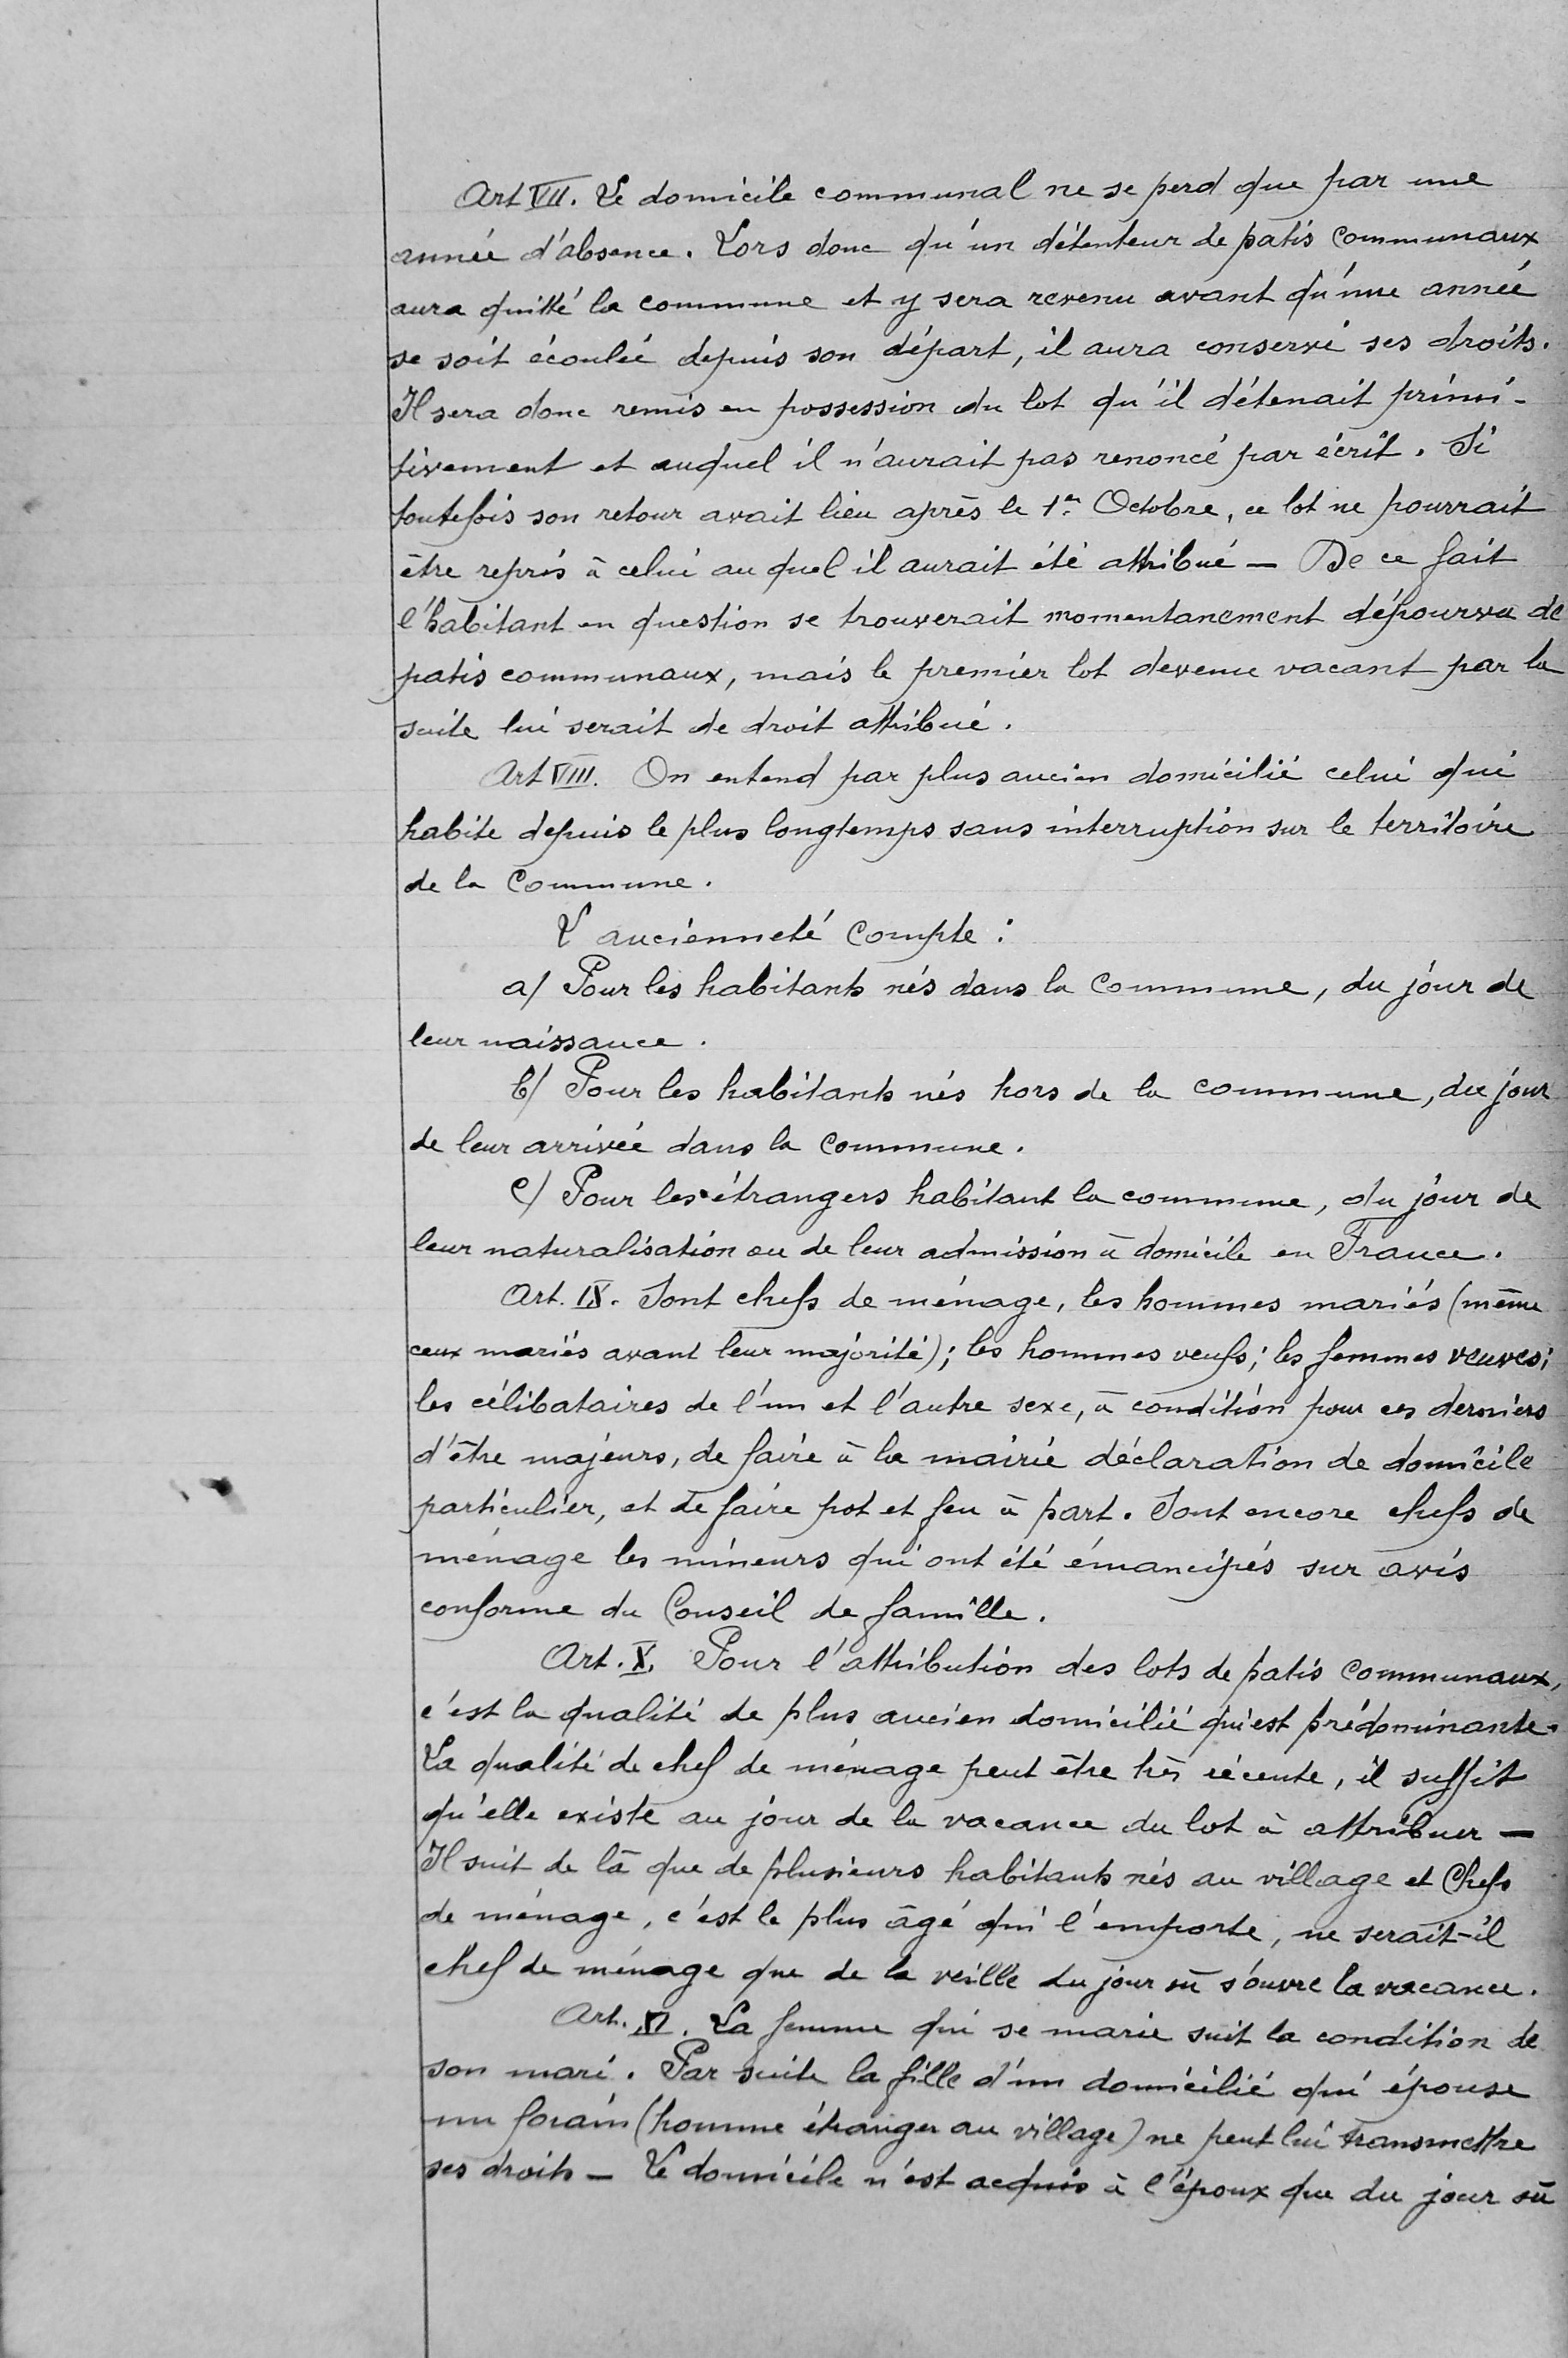 Art VII. Le domicile communal ne se perd que par une
année d'absence. Lors donc qu'un détenteur de patis communaux
aura quitté la commune et y sera revenu avant qu'une année
se soit écoulée depuis son départ, il aura conservé ses droits.
Il sera donc remis en possession du lot qu'il détenait primi-
tivement et auquel il n'aurait pas renoncé par écrit. Si
toutefois son retour avait lieu après le 1er Octobre, ce lot ne pourrait
être repris à celui au quel il aurait été attribué — De ce fait
l'habitant en question se trouverait momentanement dépourvu de
patis communaux, mais le premier lot devenu vacant par la
suite lui serait de droit attribué.
Art VIII. On entend par plus ancien domicilié celui qui
habite depuis le plus longtemps sans interruption sur le territoire
de la Commune.
L'ancienneté compte :
a/ Pour les habitants nés dans la Commune, du jour de
leur naissance.
b/ Pour les habitants nés hors de la commune, du jour
de leur arrivée dans la Commune.
c/ Pour les étrangers habitant la commune, du jour de
leur naturalisation ou de leur admission à domicile en France.
Art. IX. Sont chefs de ménage, les hommes mariés (même
ceux mariés avant leur majorité); les hommes veufs; les femmes veuves;
les célibataires de l'un et l'autre sexe, à condition pour ces derniers
d'être majeurs, de faire à la mairie déclaration de domicile
particulier, et de faire pot et feu à part. Sont encore chefs de
ménage les mineurs qui ont été émancipés sur avis
conforme du Conseil de famille.
Art. X. Pour l'attribution des lots de patis communaux,
c'est la qualité de plus ancien domicilié qui est prédominante.
La qualité de chef de ménage peut être très récente, il suffit
qu'elle existe au jour de la vacance du lot à attribuer —
Il suit de là que de plusieurs habitants nés au village et Chefs
de ménage, c'est le plus âgé qui l'emporte, ne serait-il
chef de ménage que de la veille du jour où s'ouvre la vacance.
Art. XI. La femme qui se marie suit la condition de
son mari. Par suite la fille d'un domicilié qui épouse
un forain (homme étranger au village) ne peut lui transmettre
ses droits — Le domicile n'est acquis à l'époux que du jour où